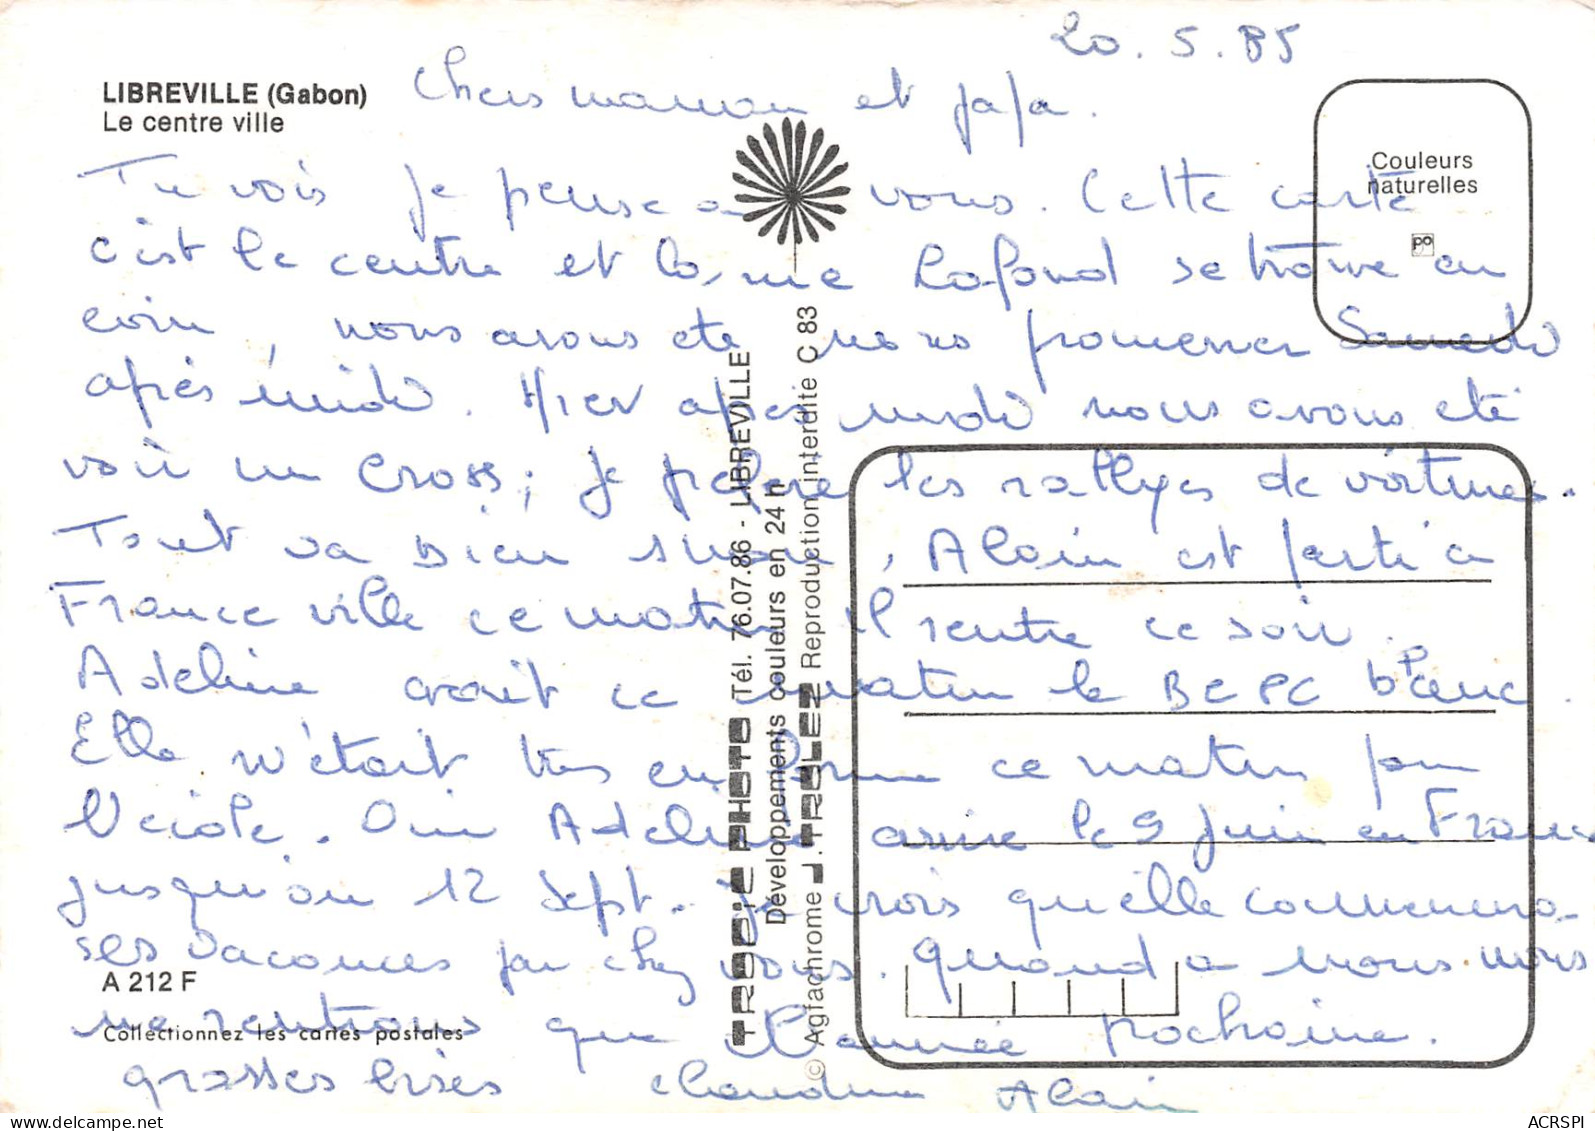 20.5.85
LIBREVILLE (Gabon)
Le centre ville
Chers maman et papa.
Couleurs
naturelles
po
Tu vois je pense a vous. Cette carte
c'est le centre et la rue Lafond se trouve en
coin, nous avons ete nous promener Samedi
après midi. Hier apres midi nous avons eté
voir un Cross; je préfère les rallyes de voitures.
Tout va bien sinon, Alain est parti a
France ville ce matin il rentre ce soir.
Adeline avait ce matin le BEPC blanc.
Elle n'était tres en forme ce matin pour
l'ecole. Oui Adeline arrive le 9 Juin en France
jusqu'au 12 Sept. Je crois qu'elle commencera
ses vacances par chez vous. Quand a nous nous
ne rentrons que l'année prochaine.
grosses bises Claudine Alain
A 212 F
Collectionnez les cartes postales
TROPIC PHOTO Tél. 76.07.86 - LIBREVILLE
Développements couleurs en 24 h
© Agfachrome J. TROLEZ Reproduction interdite C 83
ACRSPI